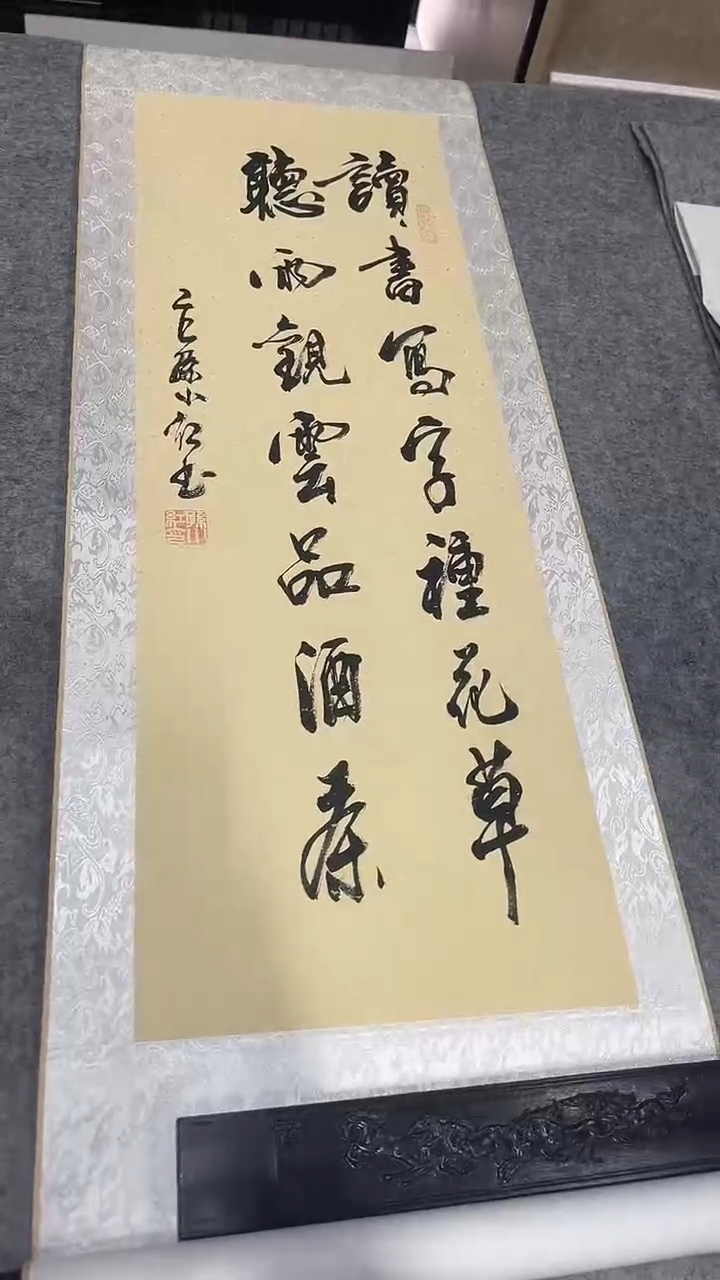 讀書寫字種花草
聽雨觀雲品酒茶
孫小紅书